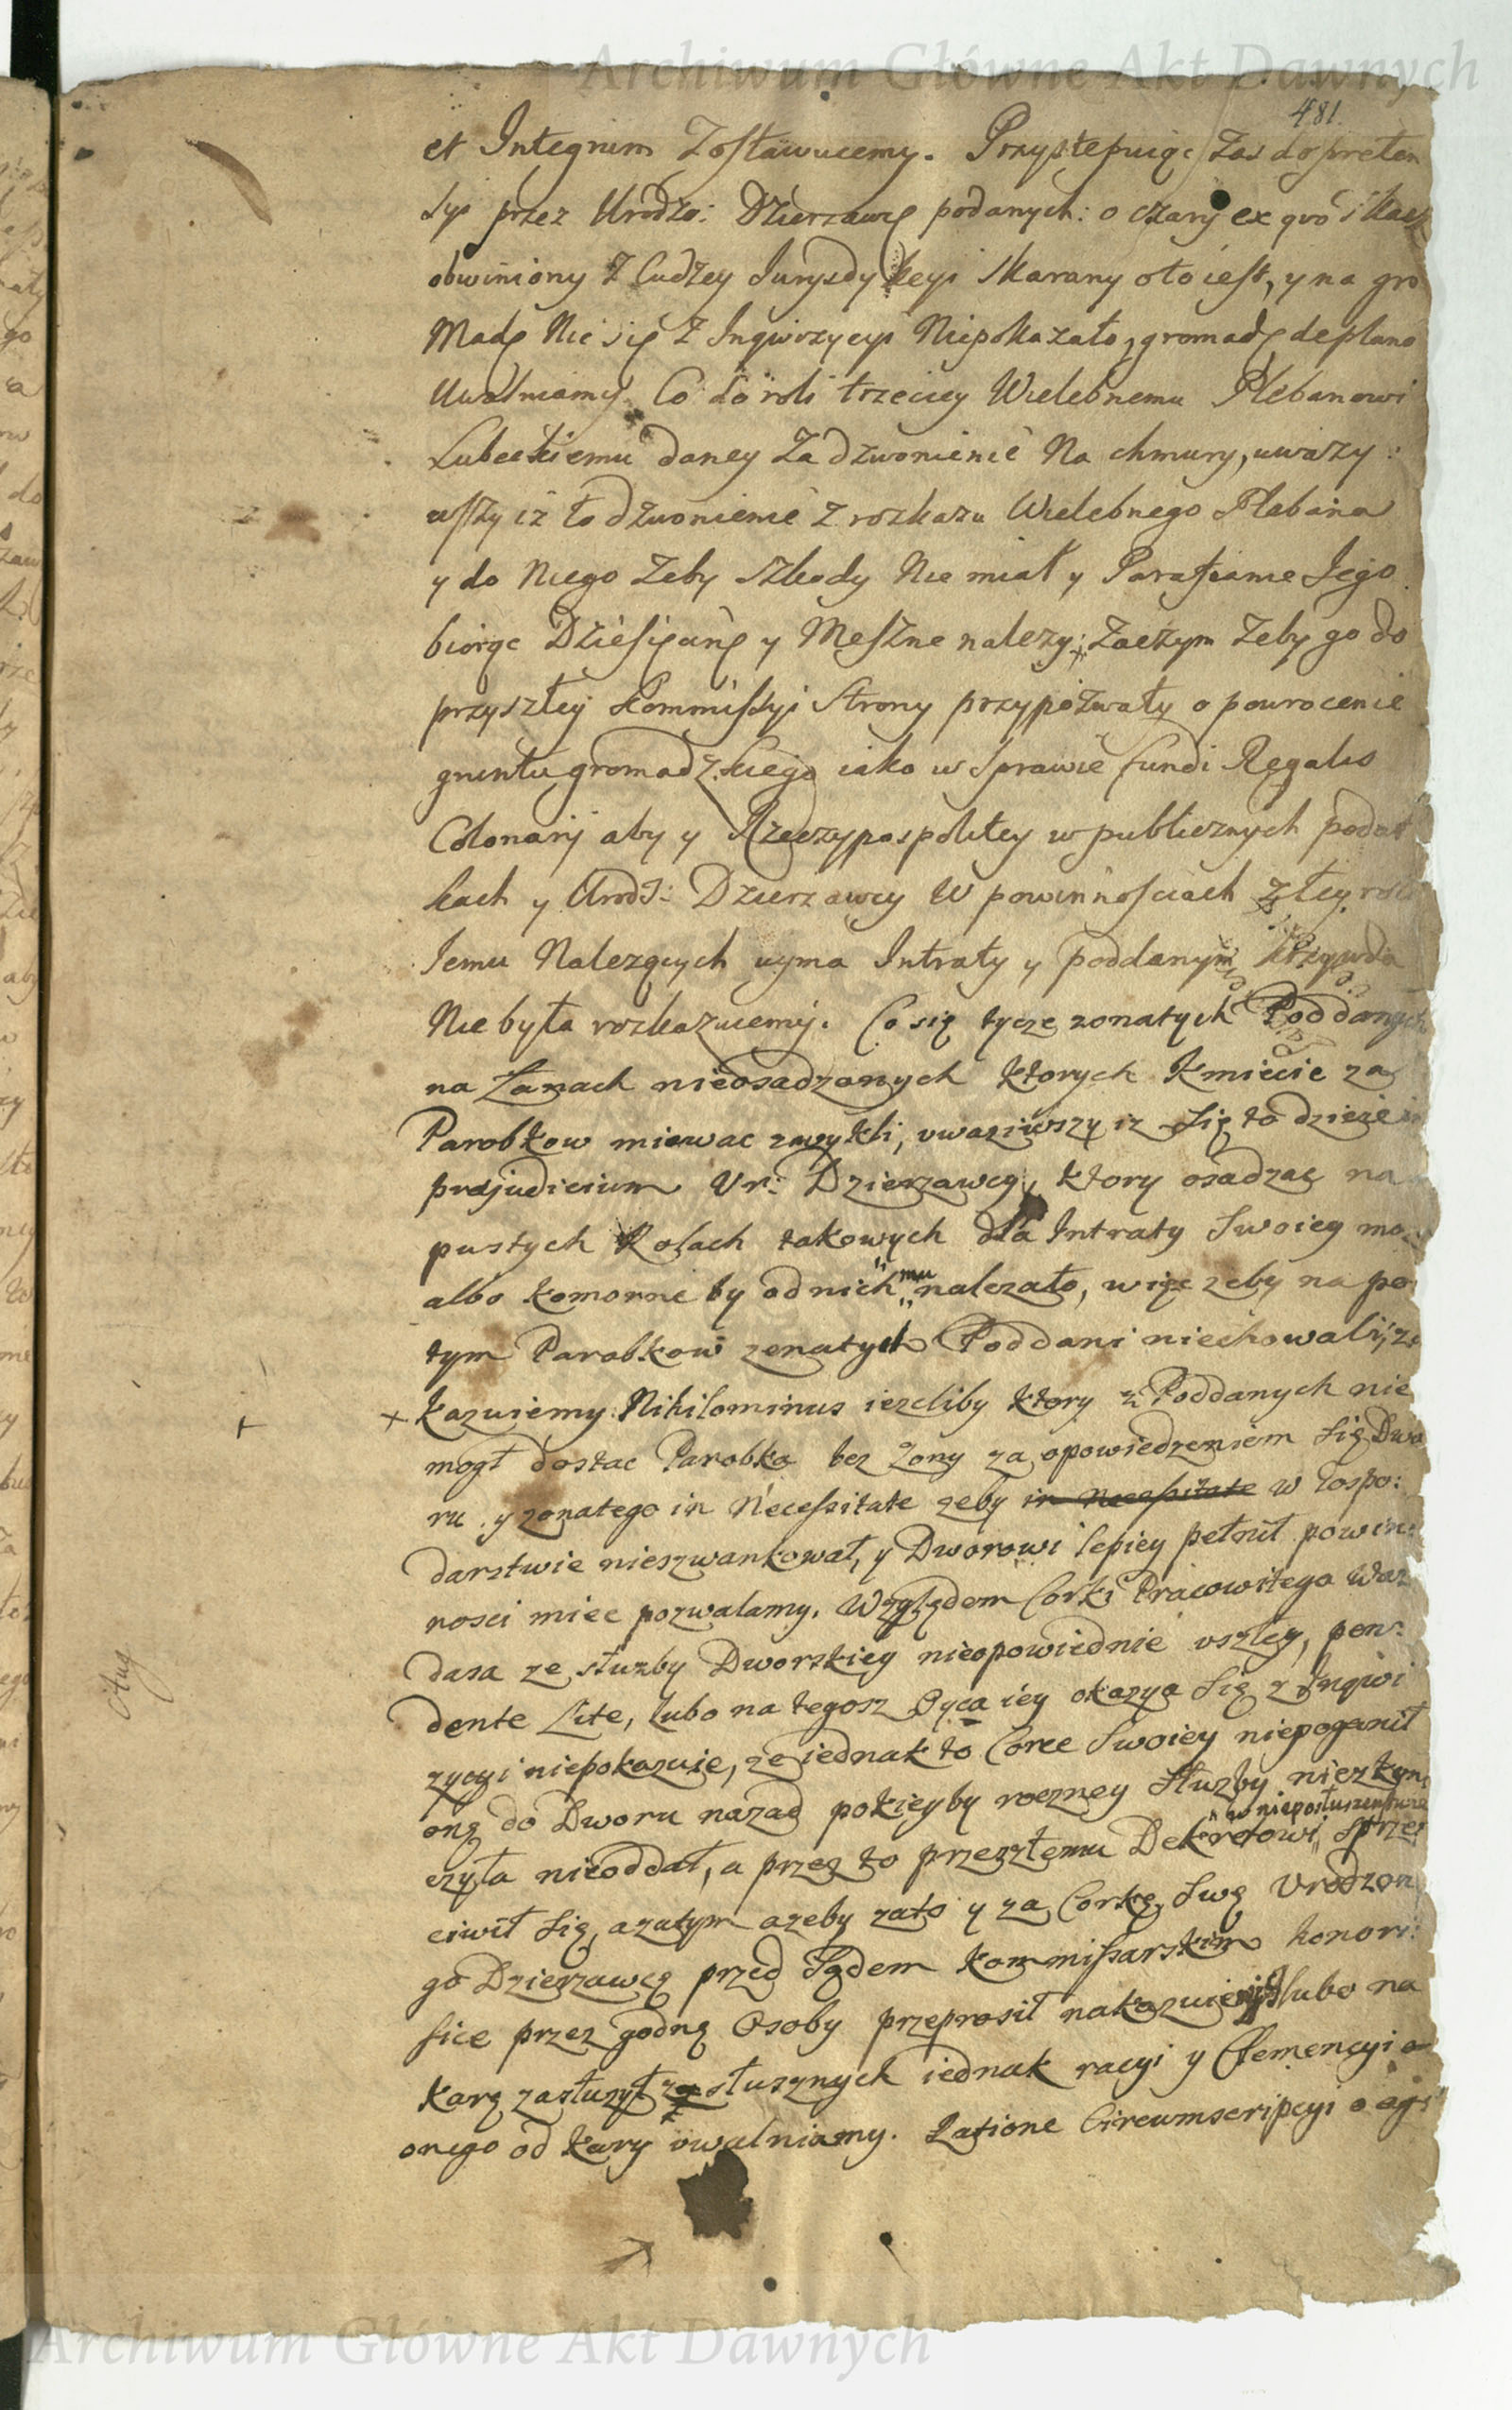 Archiwum Główne Akt Dawnych
481.
et Integrum Zostawuiemy. Przystępuiąc zas do preten
syi przez Urodzo: Dzierzawcę podanych: o czary ex quo
obwiniony z Cudzey Iurysdykcyi skarany oto iest, y na gro
madę Nic się z Inqwizycyi Niepokazało, gromadę de plano
uwalniamy. Co do roli trzeciey Wielebnemu Plebanowi
Lubeckiemu daney za dzwonienie Na chmury, uwazy:
wszy iz to dzwonienie z rozkazu Wielebnego Plebana
y do Niego zeby szkody Nie miał y Parafianie Jego
biorąc Dziesięcinę y Meszne nalezy; zaczym zeby go do
przyszłey Kommissyi Strony przypozwały o powrocenie
gruntu gromadzkiego iako w Sprawie fundi Regalis
Colonarij aby y Rzeczypospolitey w publicznych podat
kach y Urodz: Dzierzawcy w powinnosciach z tey roli
Iemu Nalezących uyma Intraty y poddanym Krzywda
Nie była rozkazuiemy. Co się tycze zonatych Poddanych
na Łanach nieosadzonych ktorych Kmiecie za
Parobkow miewac zwykli, uwaziwszy iz się to dzieie in
prejudicium Ur: Dzierzawcy, ktory osadzac na
pustych Rolach takowych dla Intraty Swoiey mo
albo komorne by od nich mu nalezało, więc zeby na po
tym Parobkow zonatych Poddani niechowali, za
+ + kazuiemy. Nihilominus iezeliby ktory z Poddanych nie
mogł dostac Parobka bez zony za opowiedzeniem się Dwo
ru y zonatego in Necessitate zeby in Necessitate w Gospo:
darstwie nieszwankował, y Dworowi lepiey pełnił powin:
nosci miec pozwalamy. Względem Corki Pracowitego Waz
dasa ze słuzby Dworskiey nieopowiednie uszłey, pen:
dente Lite, lubo na tegosz Oyca iey okazya się z Inqwi
zycyi niepokazuie, ze iednak to Corce Swoiey niepoganił
oną do Dworu nazad pokieyby roczney Słuzby niezkon
czyła nieoddał, a przez to przeszłemu Dekretowi w nieposłuszenstwie sprze
ciwił się, azatym azeby zato y za Corkę Swą Urodzon
go Dzierzawcę przed Sądem Kommissarskim honori:
fice przez godną Osoby przeprosił nakazuiemy lubo na
Karę zasłuzył ze słusznych iednak racyi y Clemencyi
onego od Kary uwalniamy. Ratione Circumscripcyi o
Aug
Archiwum Główne Akt Dawnych